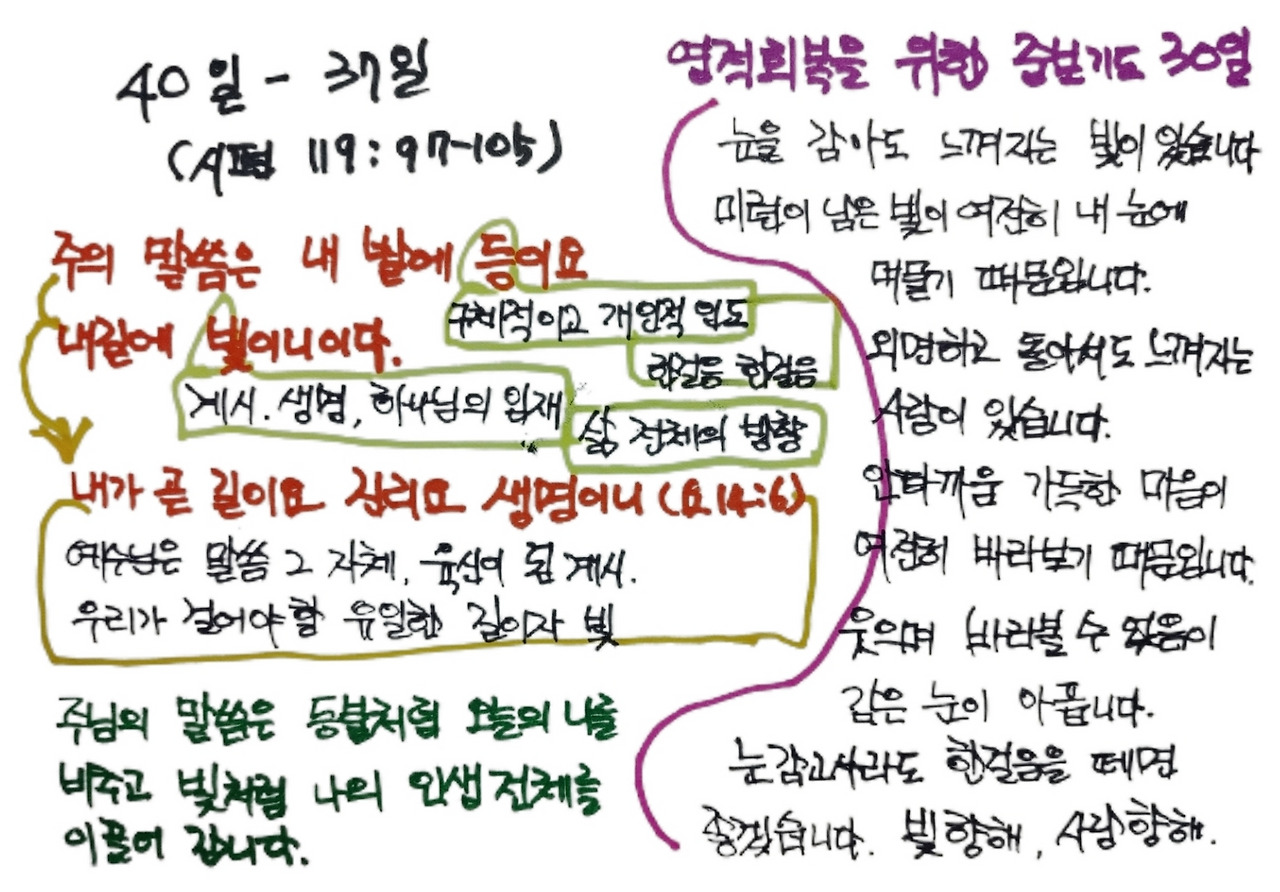 40일 - 37일
(시편 119:97-105)
주의 말씀은 내 발에 등이요
구체적이고 개인적 인도
한걸음 한걸음
내길에 빛이니이다.
계시. 생명, 하나님의 임재
삶 전체의 방향
내가 곧 길이요 진리요 생명이니 (요 14:6)
예수님은 말씀 그 자체, 육신이 된 계시.
우리가 걸어야 할 유일한 길이자 빛
주님의 말씀은 등불처럼 오늘의 나를
비추고 빛처럼 나의 인생 전체를
이끌어 갑니다.
영적회복을 위한 중보기도 30일
눈을 감아도 느껴지는 빛이 있습니다
미련이 남은 빛이 여전히 내 눈에
머물기 때문입니다.
외면하고 돌아서도 느껴지는
사람이 있습니다.
안타까움 가득한 마음이
여전히 바라보기 때문입니다.
웃으며 바라볼 수 없음이
감은 눈이 아픕니다.
눈감고서라도 한걸음을 떼면
좋겠습니다. 빛향해, 사랑향해.